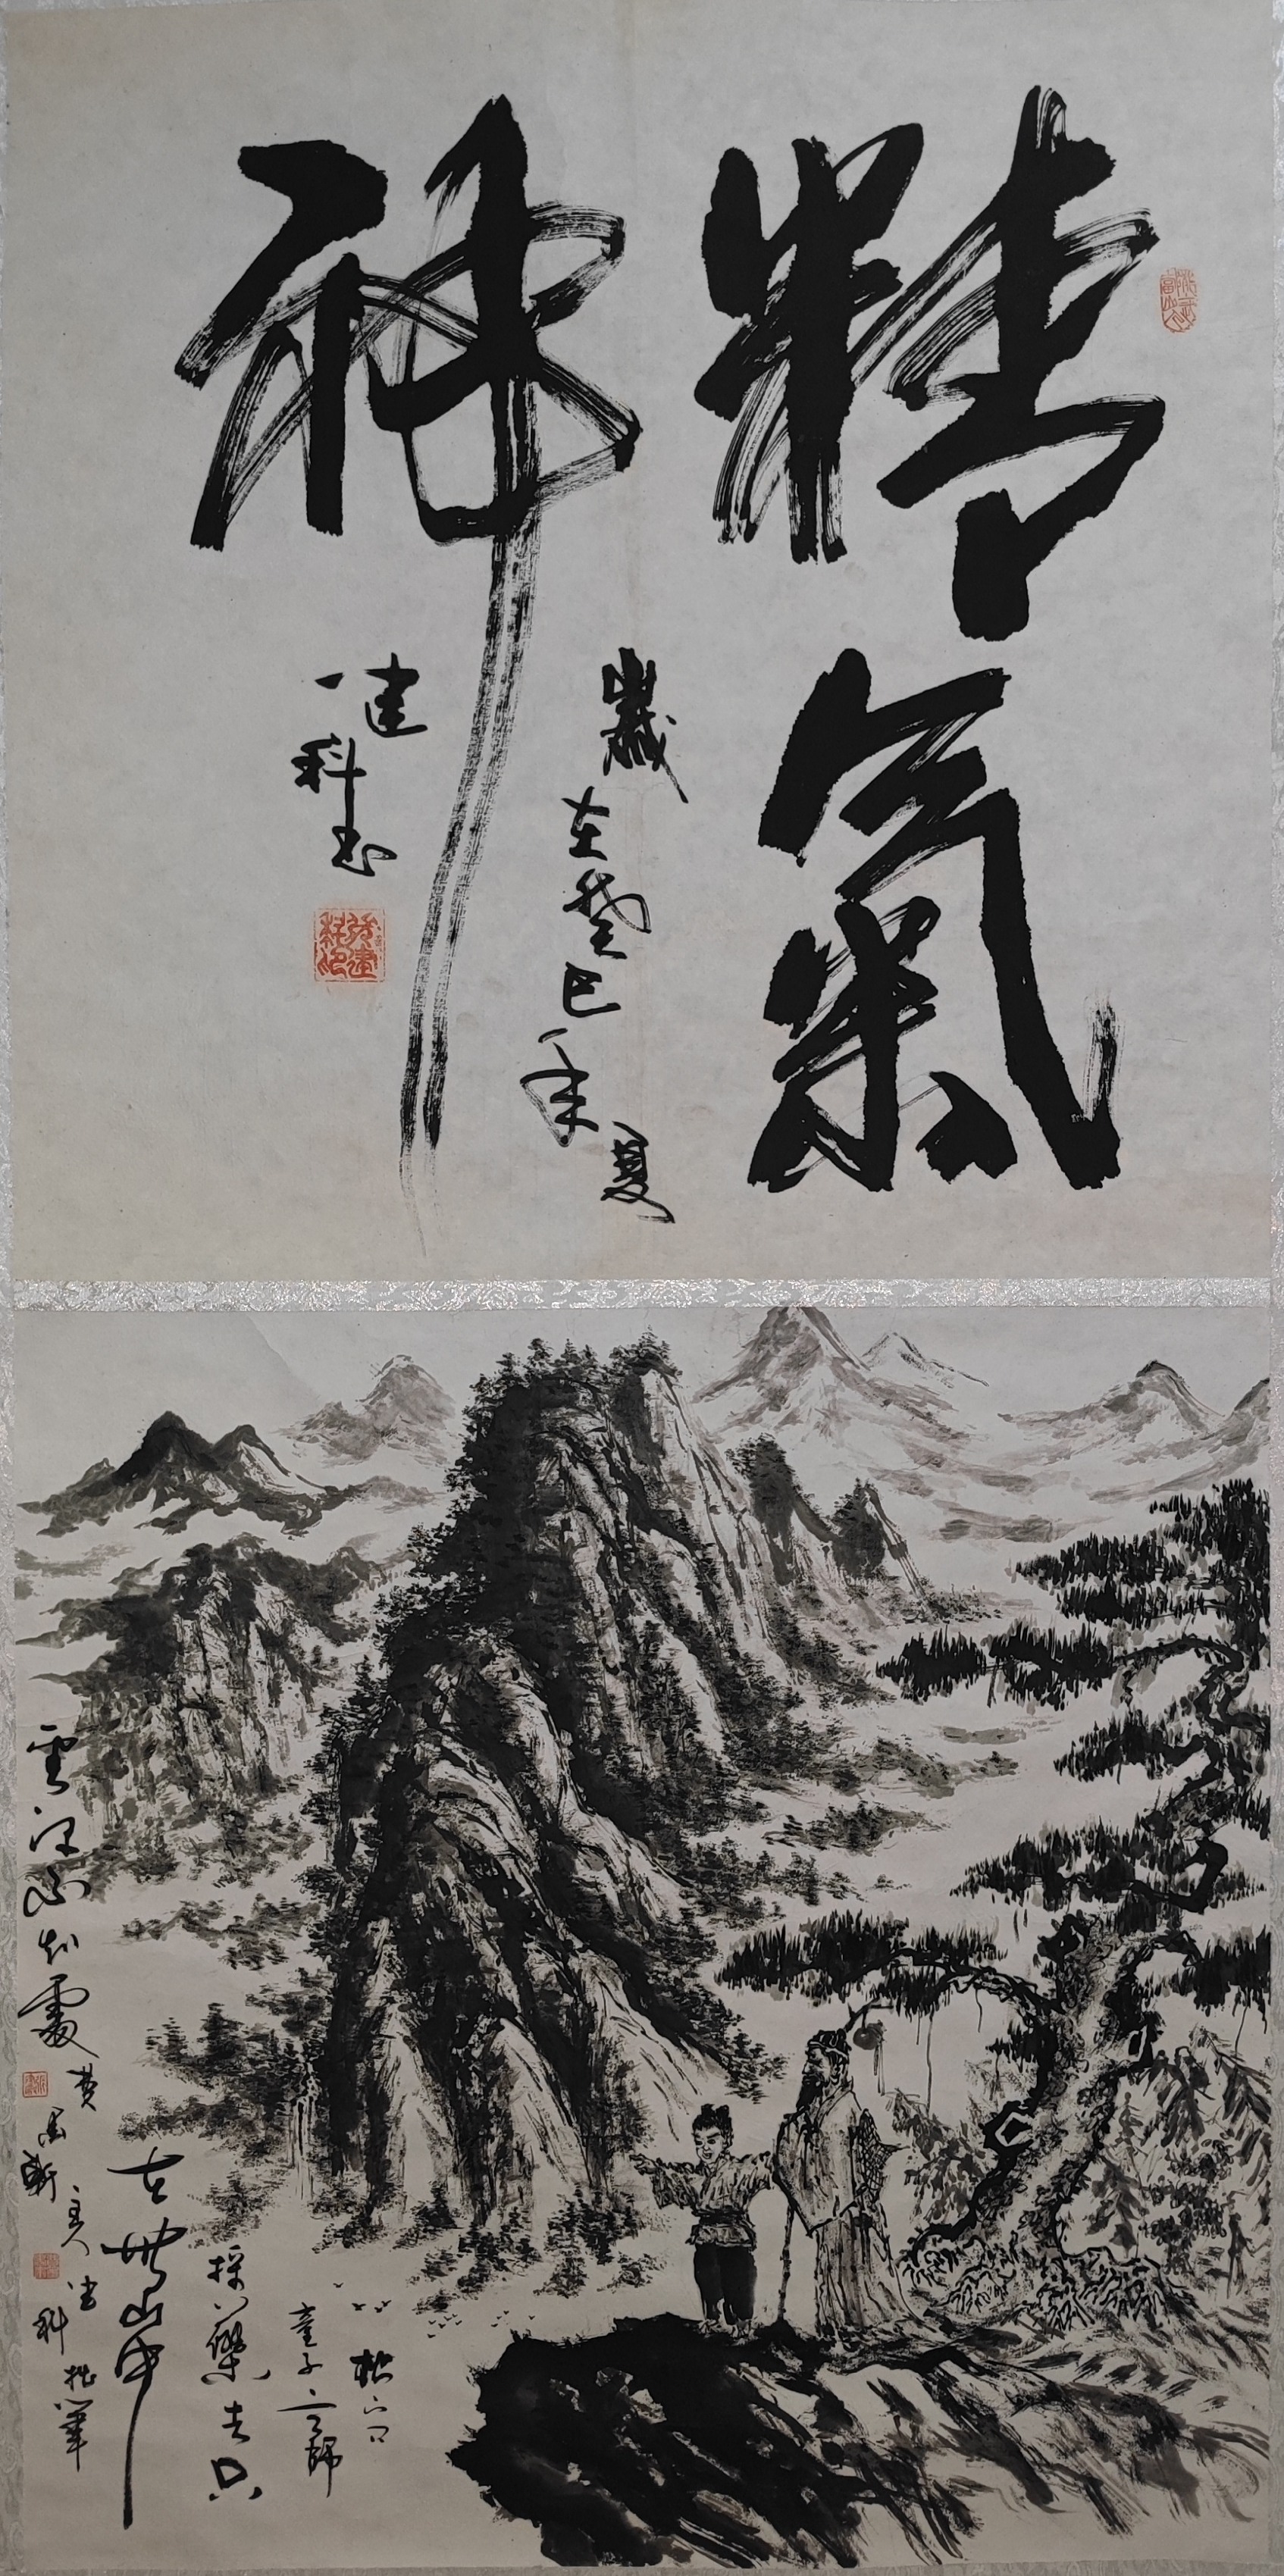 精氣
神
歲在癸巳年夏
建科書
松下問
童子言師
採藥去只
在此山中
雲深不知處
軒主人建科拙筆